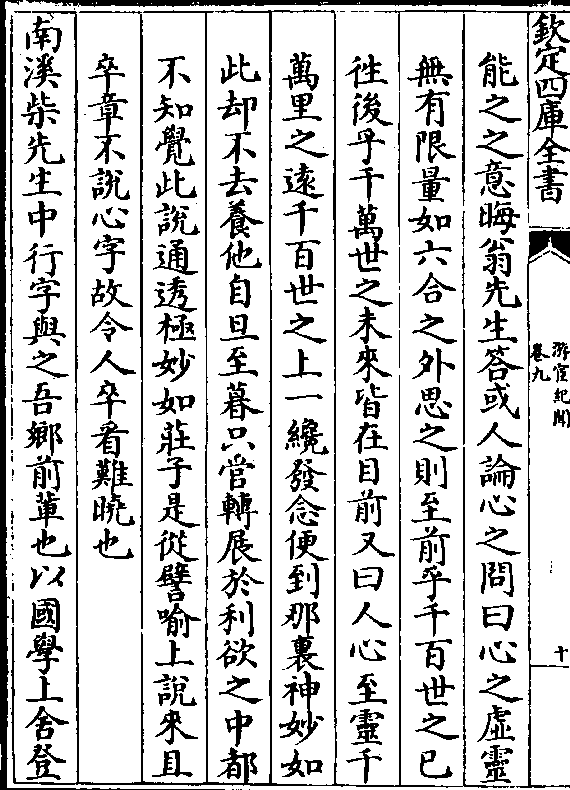 欽定四庫全書
游宦紀聞
卷九
十
能之之意晦翁先生答或人論心之問曰心之虛靈
無有限量如六合之外思之則至前乎千百世之已
徃後乎千萬世之未來皆在目前又曰人心至靈千
萬里之遠千百世之上一纔發念便到那裏神妙如
此却不去養他自旦至暮只管轉展於利欲之中都
不知覺此說通透極妙如莊子是從譬喻上說來且
卒章不說心字故令人卒看難曉也
南溪柴先生中行字與之吾鄉前輩也以國學上舍登